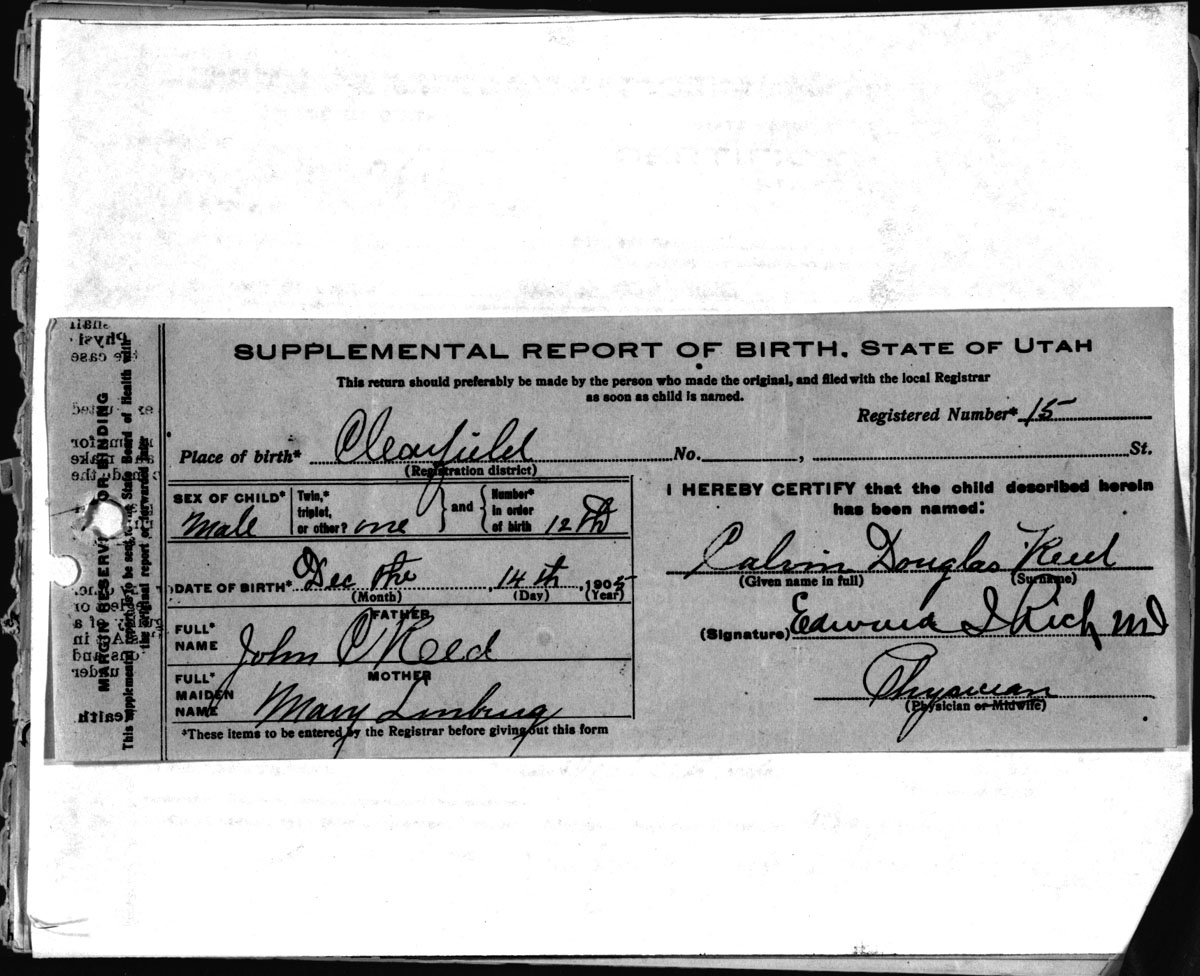 SUPPLEMENTAL REPORT OF BIRTH. STATE OF UTAH
This return should preferably be made by the person who made the original, and filed with the local Registrar
as soon as child is named.
Registered Number* 15
Place of birth* Clearfield No. , St.
(Registration district)
SEX OF CHILD* Male
Twin,* triplet, or other? one } and { Number* in order of birth 12th
DATE OF BIRTH* Dec the , 14th , 1905
(Month) (Day) (Year)
FATHER
FULL* NAME John O Reed
MOTHER
FULL* MAIDEN NAME Mary Linburg
*These items to be entered by the Registrar before giving out this form
I HEREBY CERTIFY that the child described herein
has been named:
Calvin Douglas Reed
(Given name in full) (Surname)
(Signature) Edward I Rich MD
Physician
(Physician or Midwife)
MARGIN RESERVED FOR BINDING
This supplemental report to be sent to the State Board of Health with
the original report or forwarded later